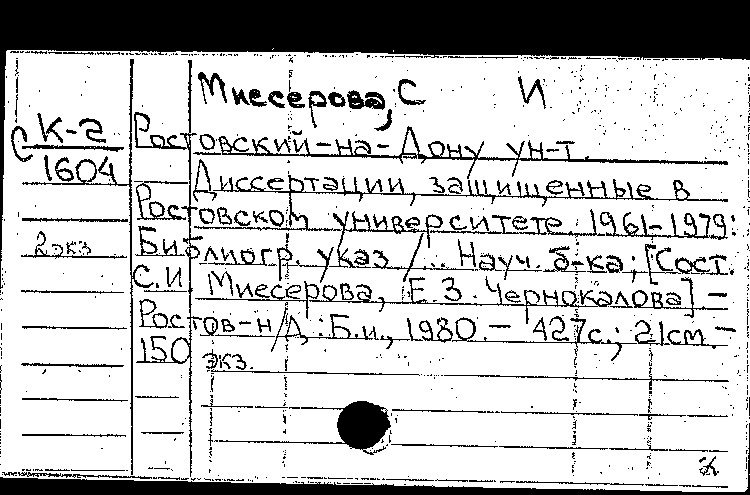 Миесерова, С И
С К-2
1604
Ростовский-на-Дону ун-т.
Диссертации, защищенные в
Ростовском университете. 1961-1979:
2 экз
Библиогр. указ /... Науч. б-ка; [Сост.
С.И. Миесерова, Е.З. Чернокалова] -
Ростов-н/Д : Б.и., 1980. - 427с.; 21см. -
150 экз.